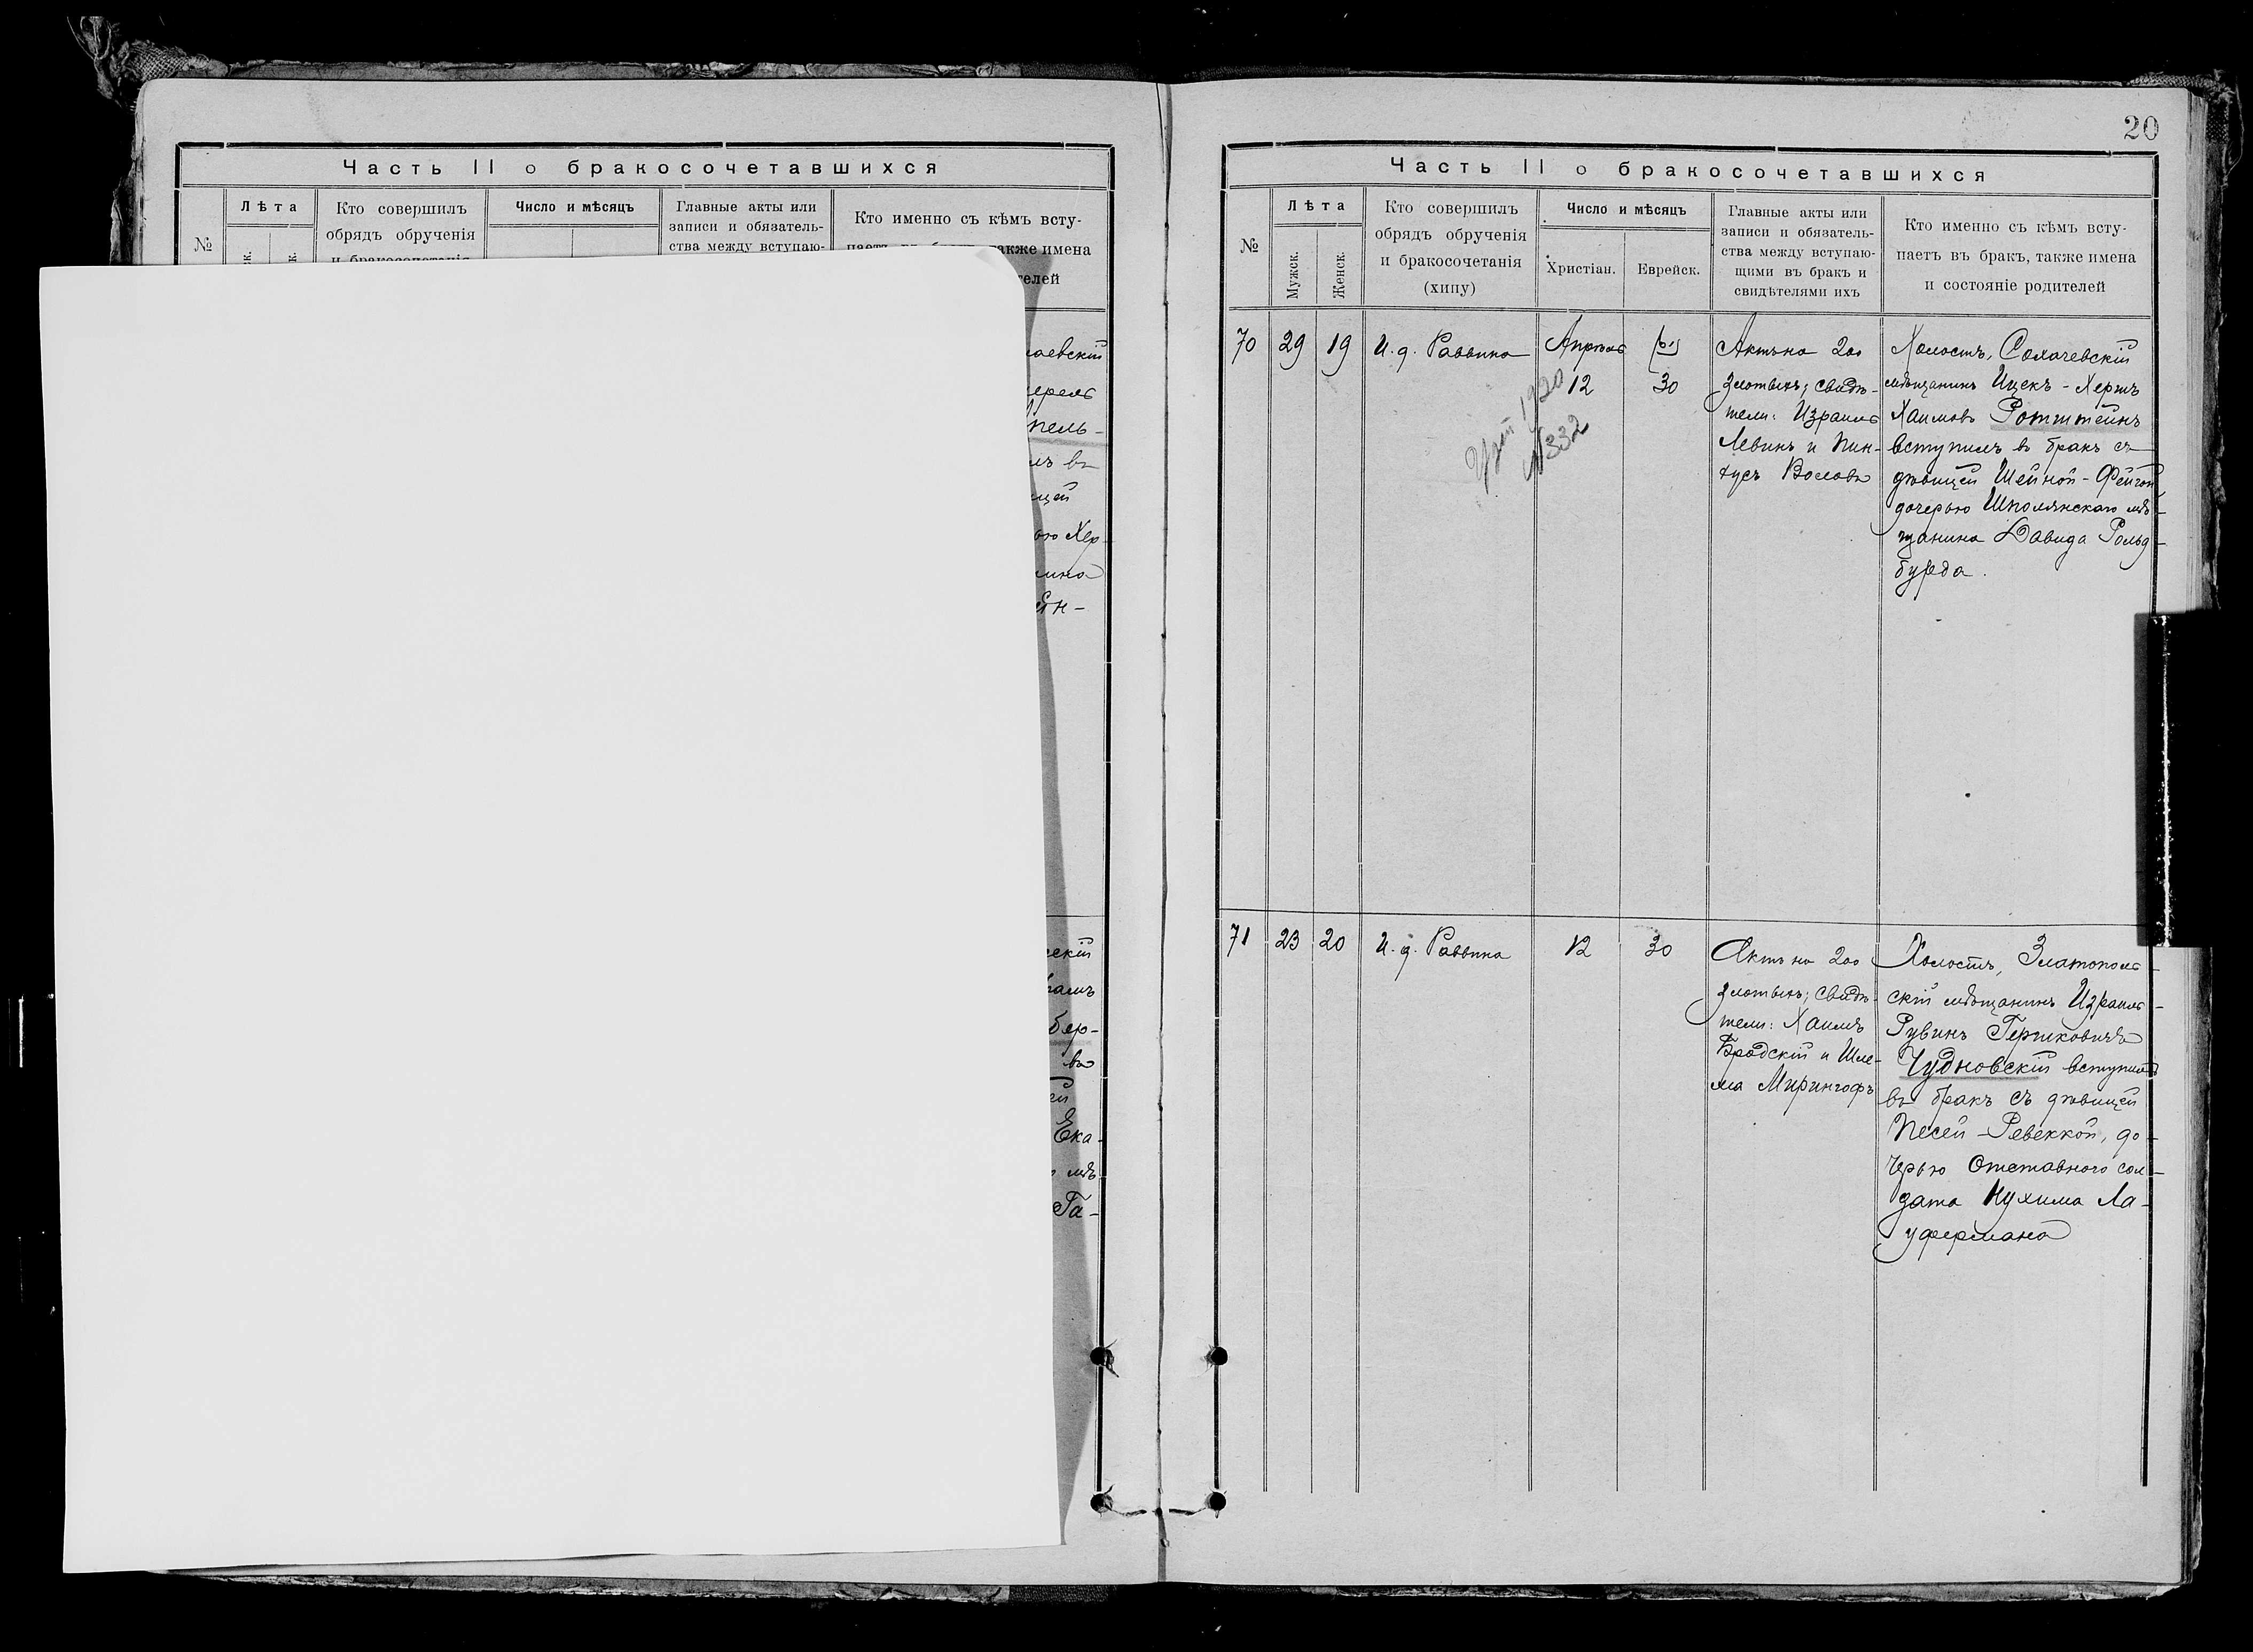 Часть II о бракосочетавшихся
№
Лѣта
Кто совершилъ
обрядъ обрученія
Число и мѣсяцъ
Главные акты или
записи и обязатель-
ства между вступаю-
Кто именно съ кѣмъ всту-
также имена
ей
пель-
въ
Хер-
бер-
въ
Ека-
мѣ
Га-
20
Часть II о бракосочетавшихся
№
Лѣта
Мужск.
Женск.
Кто совершилъ
обрядъ обрученія
и бракосочетанія
(хипу)
Число и мѣсяцъ
Христіан.
Еврейск.
Главные акты или
записи и обязатель-
ства между вступаю-
щими въ бракъ и
свидѣтелями ихъ
Кто именно съ кѣмъ всту-
паетъ въ бракъ, также имена
и состояніе родителей
70
29
19
И. д. Раввина
Апрѣль
12
ניסן
30
1920
№332
Актъ на 200
злотыхъ; свидѣ-
тели: Израиль
Левинъ и Пин-
хусъ Воловъ
Холостъ, Сохачевскій
мѣщанинъ Ицекъ-Хершъ
Хаимовъ Ротштейнъ
вступилъ въ бракъ съ
дѣвицей Шейной-Фейгой
дочерью Шполянскаго мѣ-
щанина Давида Гольд-
бурда.
71
23
20
И. д. Раввина
12
30
Актъ на 200
злотыхъ; свидѣ-
тели: Хаимъ
Бродскій и Шле-
ма Мирингофъ
Холостъ, Златополь-
скій мѣщанинъ Израиль-
Рувинъ Гершковичъ
Чудновскій вступилъ
въ бракъ съ дѣвицей
Песей-Ревеккой, до-
черью Отставного сол-
дата Нухима Ла-
уфермана